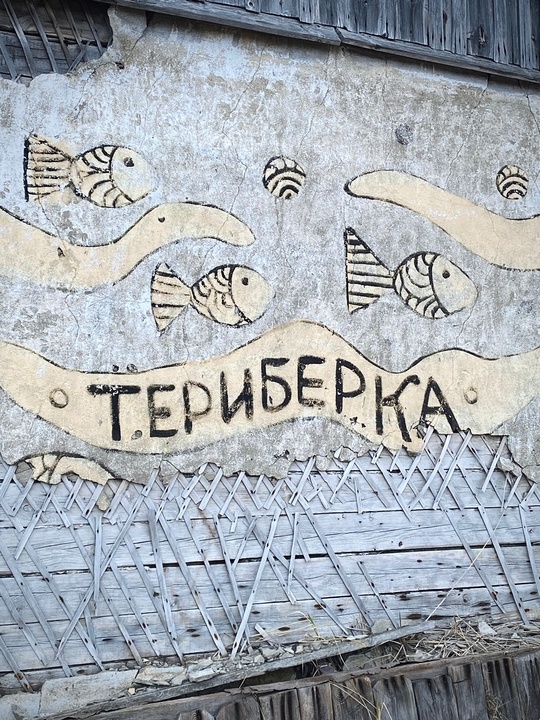 ТЕРИБЕРКА